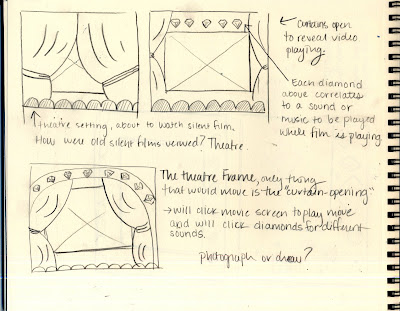 Curtains open
to reveal video
playing.
Each diamond
above correlates
to a sound or
music to be played
while film is playing
theatre setting, about to watch silent film.
How were old silent films viewed? Theatre.
The theatre Frame, only thing
that would move is the "curtain-opening"
→ will click movie screen to play move
and will click diamonds for different
sounds.
photograph or draw?